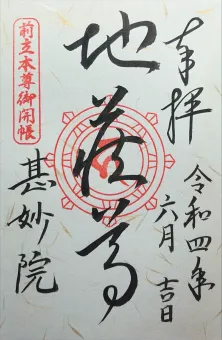 奉拝
令和四年
六月吉日
地蔵尊
前立本尊御開帳
甚妙院